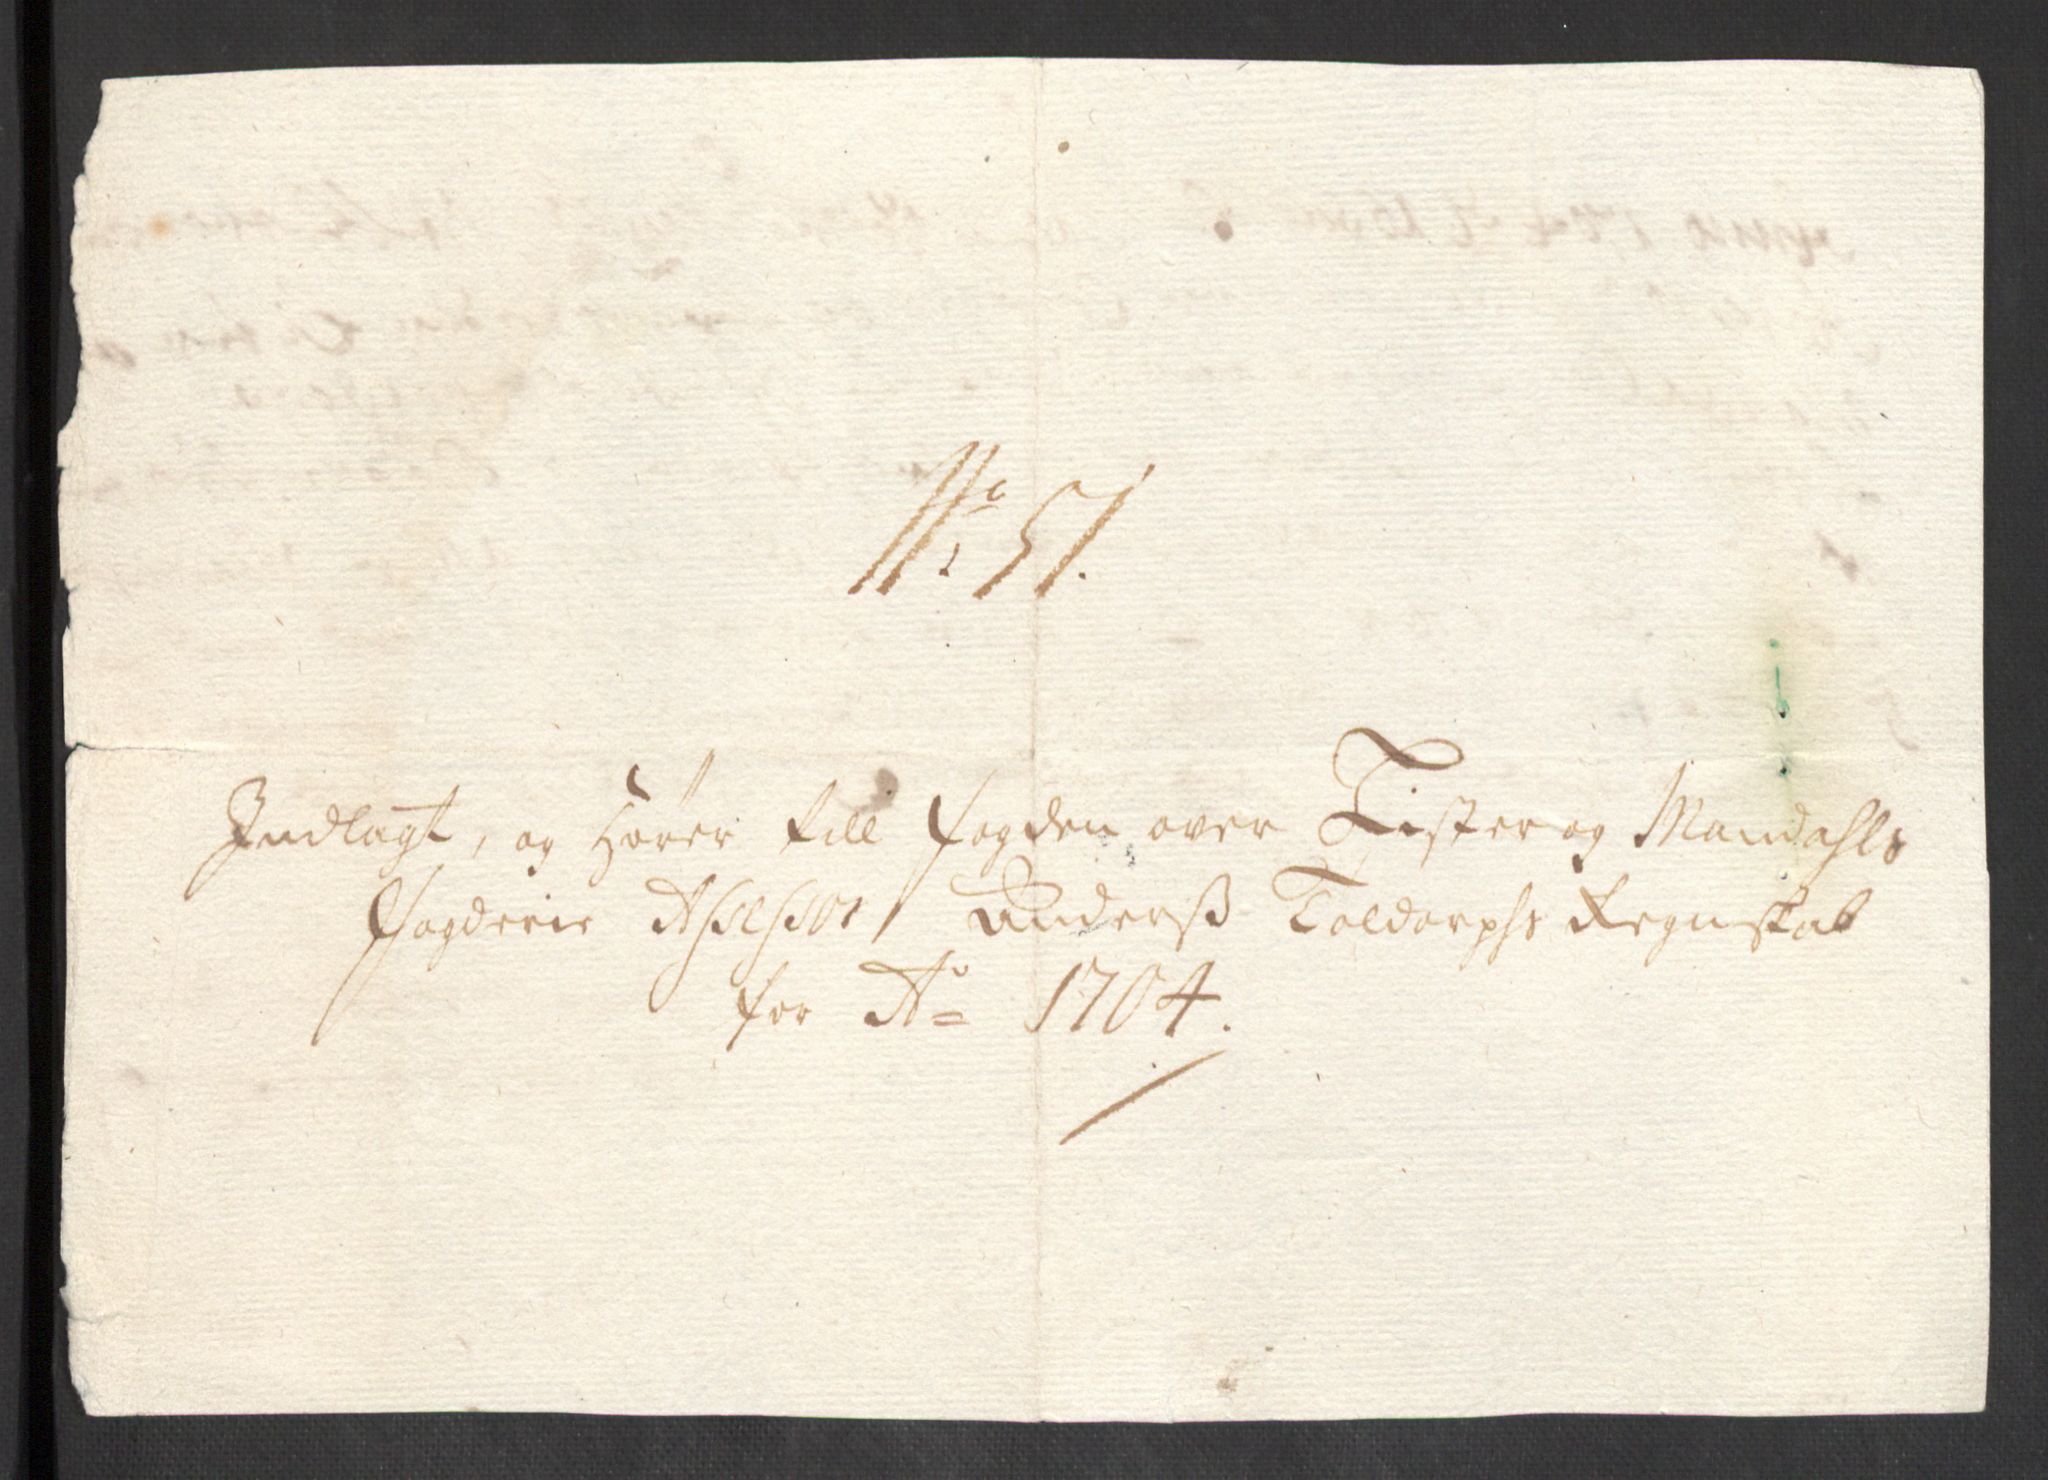 No 51.
Indlagt, og Hører till fogden over Lister og Mandahls
fogderie Assessor Anderß Toldorphs Regnskab
for Ao 1704.